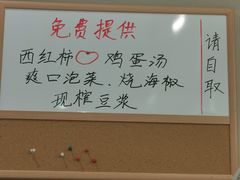 免费提供
西红柿♡鸡蛋汤
爽口泡菜、烧海椒
现榨豆浆
请自取